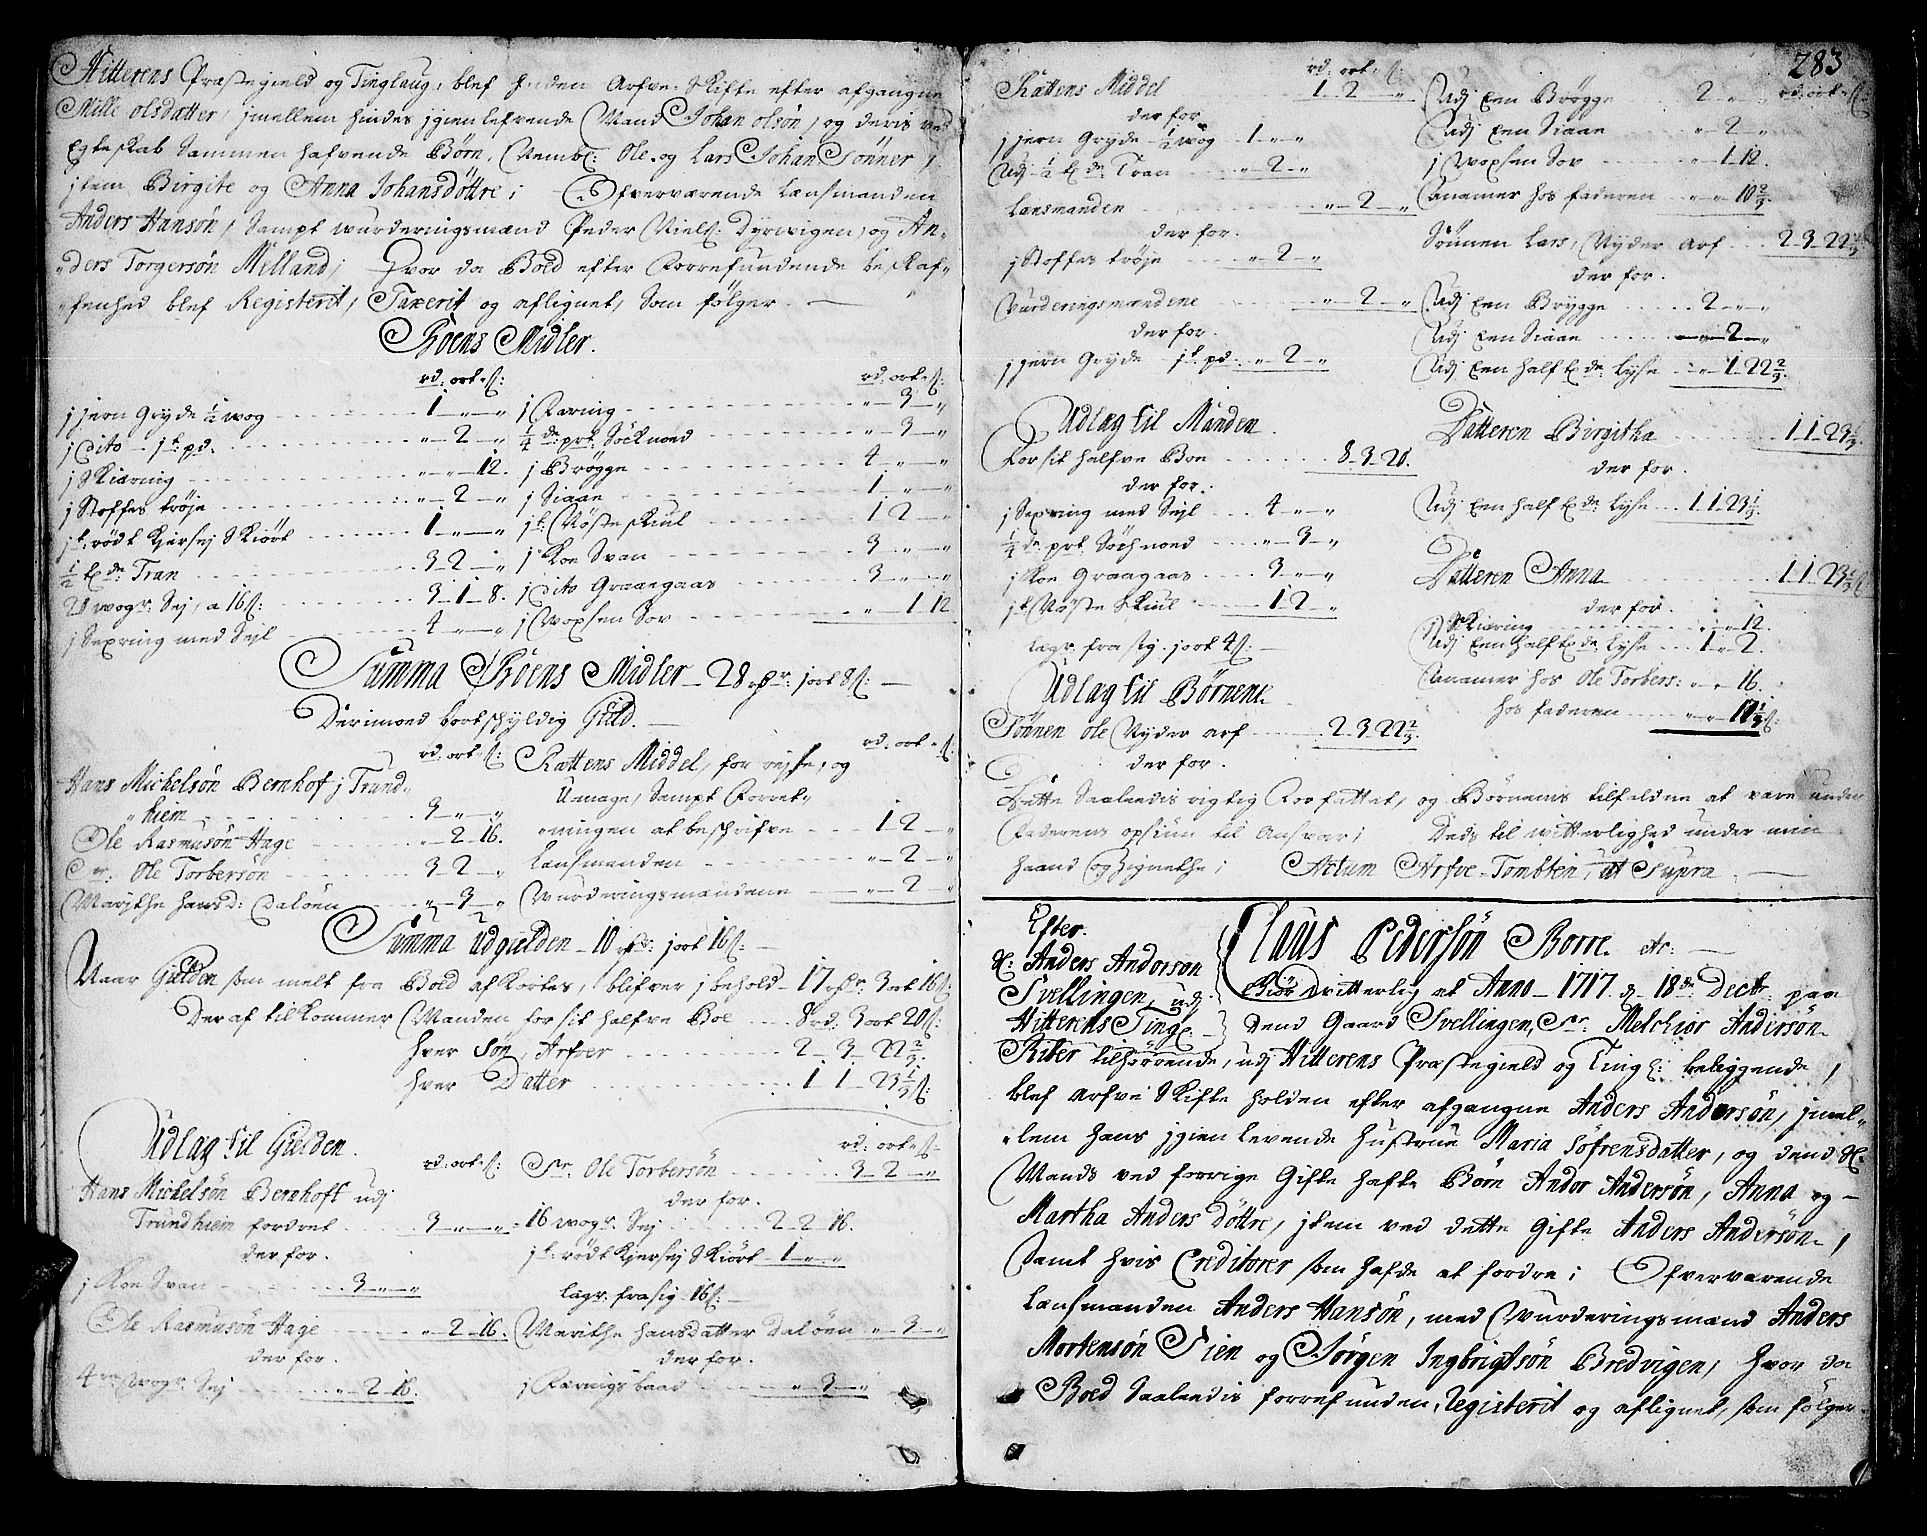 Hitterens Præstegield og Tinglaug, blef holden Arfve Skifte efter afgangne
Mille olsdatter, jmellem hindes jgienlefvende Mand Johan olsøn, og deris ved
Egteskab Sammen hafvende Børn, Nembl: Ole og Lars Johan Sønner,
jtem Birgite og Anna Johansdøttre; Ofverværende Lensmanden
Anders Hansøn, Sampt wurderingsmænd Peder Niels: Dyrwigen, og An-
ders Torgersøn Melland; Hvor da Boed efter Forrefundende beskaf-
fenhed blef Registerit, Taxerit og aflignet, Som følger. —
Boens Midler.
rd: ort. s:
j jern Gryde ½ wog 1 - " - "
j Dito - 1 pd. " - 2 - "
j Skiering " - " - 12.
j Stoffes trøje " - 2 - "
j rødt Kjersej Skiørt 1 - " - "
½ td: Tran 3 - 2 - "
20 wogr. Sej, a 16 s: 3 - 1 - 8.
j Sexring med Sejl 4 - " - "
rd: ort. s:
j Færing " - 3 - "
¼ de prt: Søcknoed " - 3 - "
j Brøgge 4 - " - "
j Siaae 1 - " - "
j Nøste skiul 1 2 - "
j Koe Svan 3 - " - "
j Dito Graagaas 3 - " - "
j Woxsen Sov " - 1 12
Summa Boens Midler - 28 rdr: j ort 8 s: —
Derimoed bortschyldig Gield. —
rd: ort. s:
Hans Michelsøn Bernhof j Trund-
hiem 3 - " - "
Ole Rasmusøn Hage " - 2 - 16.
Sr. Ole Torbersøn 3 - 2 - "
Marithe Hansd: Daløen " - 3 - "
rd: ort. s:
Rættens Middel, for rejse, og
Umage, Sampt Forret-
ningen at beschrifve 1 - 2 - "
Lensmanden " - 2 - "
Wurderingsmændene " - 2 - "
Summa udgielden - 10 rdr: j ort 16 s: —
Naar Gielden som melt fra Boed afkortes, blifver j behold - 17 rdr: 3 ort 16 s:
Deraf tilkommer Manden for sit halfve Boe 8 rd. 3 ort 20 s:
hver Søn, Arfver 2 - 3 - 22 2/3.
hver Datter 1 1 - 23 1/3 s:
Udlag til Gielden.
rd: ort. s:
Hans Michelsøn Bernhoft udj
Trundhiem fordret 3 - " - "
derfor.
j Koe Svan 3 - " - "
Ole Rasmusøn Hage " - 2 - 16.
derfor.
4re wogr. Sej " - 2 - 16.
rd: ort. s:
Sr. Ole Torbersøn 3 - 2 - "
derfor.
16 wogr. Sej 2 - 2 - 16.
j rødt Kjersej Skiørt 1 - " - "
lagr. fra sig - 16 s: —
Marithe Hansdatter Daløen " - 3 - "
derfor.
j Færings baad " - 3 - "
283
rd: ort. s:
Rættens Middel 1 - 2 - "
derfor
j jern Gryde ½ wog 1 - " - "
Udj ½ td: Tran " - 2 - "
Lensmanden " - 2 - "
derfor.
j Stoffes trøje " - 2 - "
Vurderingsmændene " - 2 - "
derfor.
j jern Gryde 1 pd. " - 2 - "
Udlag til Manden
For sit halfve Boe 8 - 3 - 20.
derfor.
j Sexring med Sejl 4 - " - "
¼ de prt. Søchnoed " - 3 - "
j Koe Graagaas 3 - " - "
j Nøste Skiul 1 - 2 - "
lagr. fra sig. j ort 4 s: —
Udlag til Børnene.
Sønnen Ole Nyder arf 2 - 3 - 22 2/3.
derfor.
rd: ort. s:
Udj Een Brøgge 2 - " - "
Udj Een Siaae " - 2 - "
j Woxsen Sov " - 1 12.
Annamer hos faderen " - " - 10 2/3.
Sønnen Lars, Nyder Arf 2 - 3 - 22 2/3
derfor.
Udj Een Brygge 2 - " - "
Udj Een Siaae " - 2 - "
Udj Een half td: Lyse " - 1 - 22 2/3.
Datteren Birgitha 1 1 - 23 1/3.
derfor.
Udj Een half td: Lyse 1 1 - 23 1/3.
Datteren Anna 1 1 - 23 1/3 s
derfor.
j Skiering " - " - 12.
Udj Een half td: Lyse 1 - " - 2.
Annamer hos Ole Torbers: " - " - 16.
hos faderen " - " - 10 1/3 s:
Dette Saaledis rigtig Forfattet, og Børnenis tilfaldne at vare under
Faderens opsiun til Ansvar; Dets til witterlighed under min
haand og Zignethe; Actum Arfve-Tombten, ut Supra —
Efter.
Sl: Anders Anderson
Svellingen, udj
Hitterens Tingl.
Claus Pedersøn Borre. etc: —
Giør witterlig at Anno - 1717. d. 18de Decbr: paa
dend Gaard Svellingen, Sr. Melchior Andersøn
Riber tilhørende, udj Hitterens Præstegield og Tingl: beliggende,
blef Arfve Skifte holden efter afgangne Anders Andersøn, jmel-
lem hans jgienlevende hustrue Maria Sofrensdatter, og dend Sl.
Mands ved forrige Gifte hafte Børn Andor Andersøn, Anna og —
Martha Anders døttre, jtem ved dette Gifte Anders Andersøn,
Samt hvis Creditorer som hafde at fordre; Ofverværende
Lensmanden Anders Hansøn, med Wurderingsmænd Anders
Mortensøn Sien og Jørgen Ingbrigtsøn Bredvigen, hvor da
Boed Saaledis forrefunden, Registerit og aflignet, som følger.